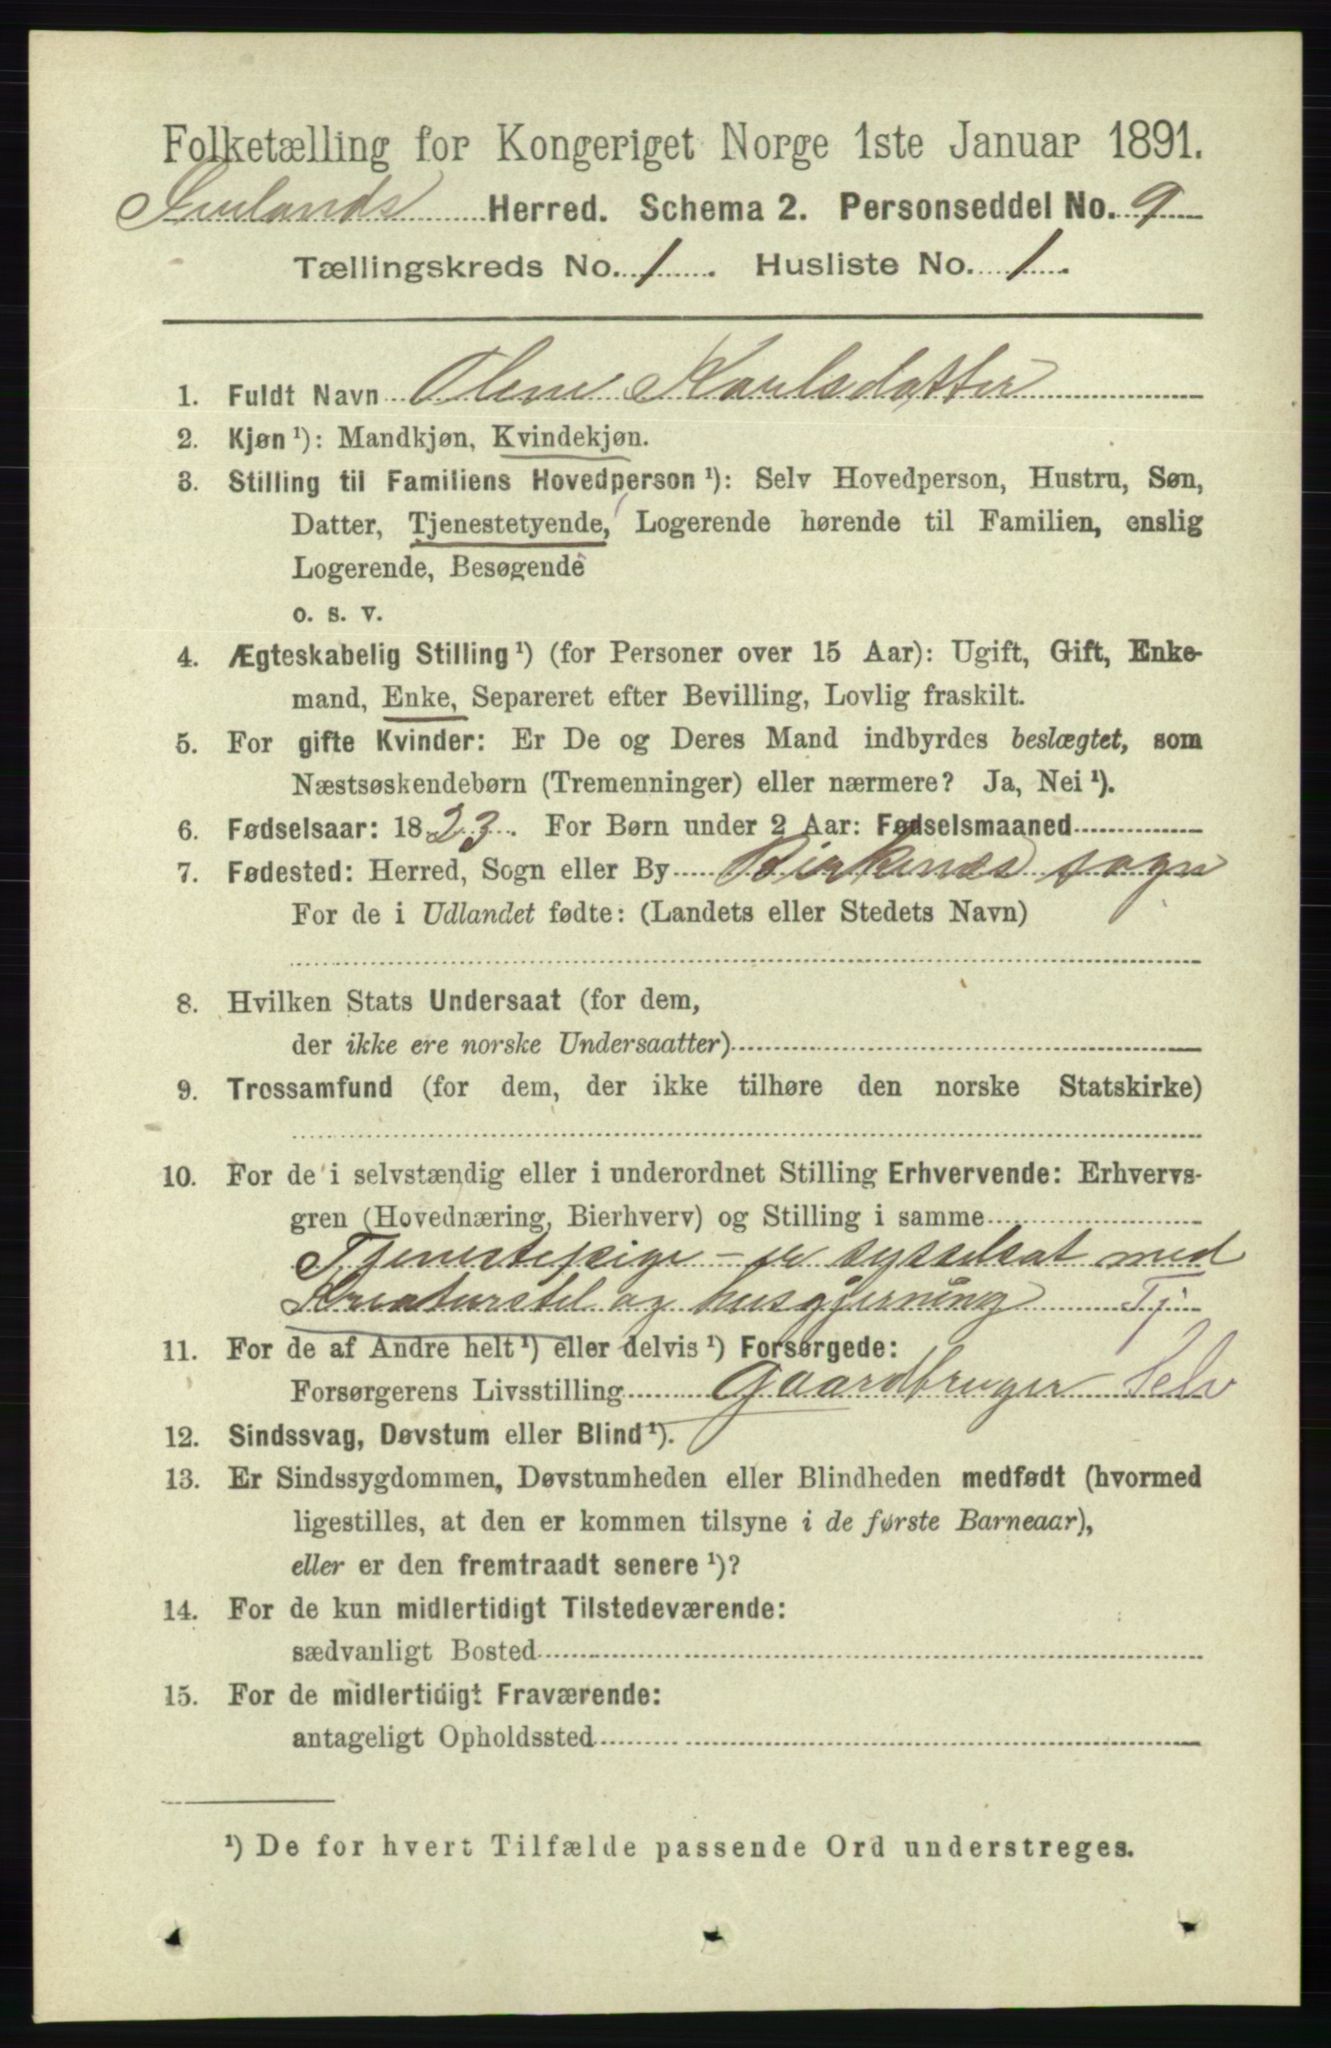 Folketælling for Kongeriget Norge 1ste Januar 1891.
Herred. Schema 2. Personseddel No. 9
Tællingskreds No. 1. Husliste No. 1.
1. Fuldt Navn Olene Karlsdatter
2. Kjøn ¹): Mandkjøn, Kvindekjøn.
3. Stilling til Familiens Hovedperson ¹): Selv Hovedperson, Hustru, Søn,
Datter, Tjenestetyende, Logerende hørende til Familien, enslig
Logerende, Besøgende
o. s. v.
4. Ægteskabelig Stilling ¹) (for Personer over 15 Aar): Ugift, Gift, Enke-
mand, Enke, Separeret efter Bevilling, Lovlig fraskilt.
5. For gifte Kvinder: Er De og Deres Mand indbyrdes beslægtet, som
Næstsøskendebørn (Tremenninger) eller nærmere? Ja, Nei ¹).
6. Fødselsaar: 1823. For Børn under 2 Aar: Fødselsmaaned
7. Fødested: Herred, Sogn eller By Birkenæs sogn
For de i Udlandet fødte: (Landets eller Stedets Navn)
8. Hvilken Stats Undersaat (for dem,
der ikke ere norske Undersaatter)
9. Trossamfund (for dem, der ikke tilhøre den norske Statskirke)
10. For de i selvstændig eller i underordnet Stilling Erhvervende: Erhvervs-
gren (Hovednæring, Bierhverv) og Stilling i samme
Tjenestepige - er sysselsat med
Kreaturstel og husgjerning Tj
11. For de af Andre helt ¹) eller delvis ¹) Forsørgede:
Forsørgerens Livsstilling Gaardbruger Selv
12. Sindssvag, Døvstum eller Blind ¹).
13. Er Sindssygdommen, Døvstumheden eller Blindheden medfødt (hvormed
ligestilles, at den er kommen tilsyne i de første Barneaar),
eller er den fremtraadt senere ¹)?
14. For de kun midlertidigt Tilstedeværende:
sædvanligt Bosted
15. For de midlertidigt Fraværende:
antageligt Opholdssted
¹) De for hvert Tilfælde passende Ord understreges.